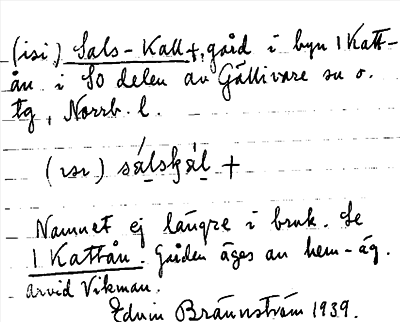 (isi) Sals-Kall +, gård i byn 1 Katt-
ån i SO delen av Gällivare sn o.
tg, Norrb. l.
(ısı) sálsḵál +
Namnet ej längre i bruk. Se
1 Kattån. Gården äges av hem-äg.
Arvid Vikman.
Edvin Brännström 1939.